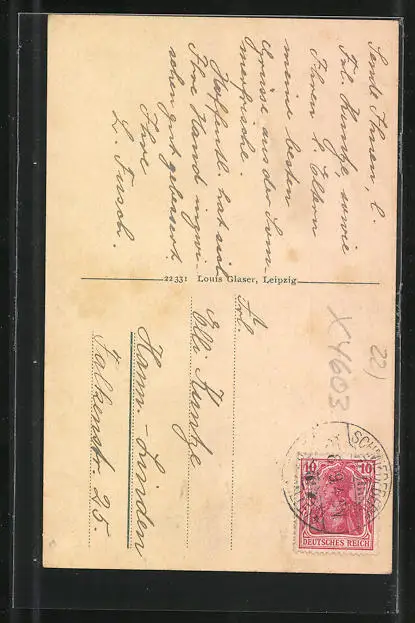 Sende Ihnen, l.
Frl. Kuntze, sowie
Ihren l. Eltern
meine besten
Grüsse aus der Som-
merfrische.
Hoffentl. hat sich
Ihre Hand inzwi-
schen gut gebessert.
Ihre
L. Tusch.
22331 Louis Glaser, Leipzig
Frl.
Elli Kuntze
Hann.-Linden
Falkenstr. 25.
22)
X4603
10 10
DEUTSCHES REICH